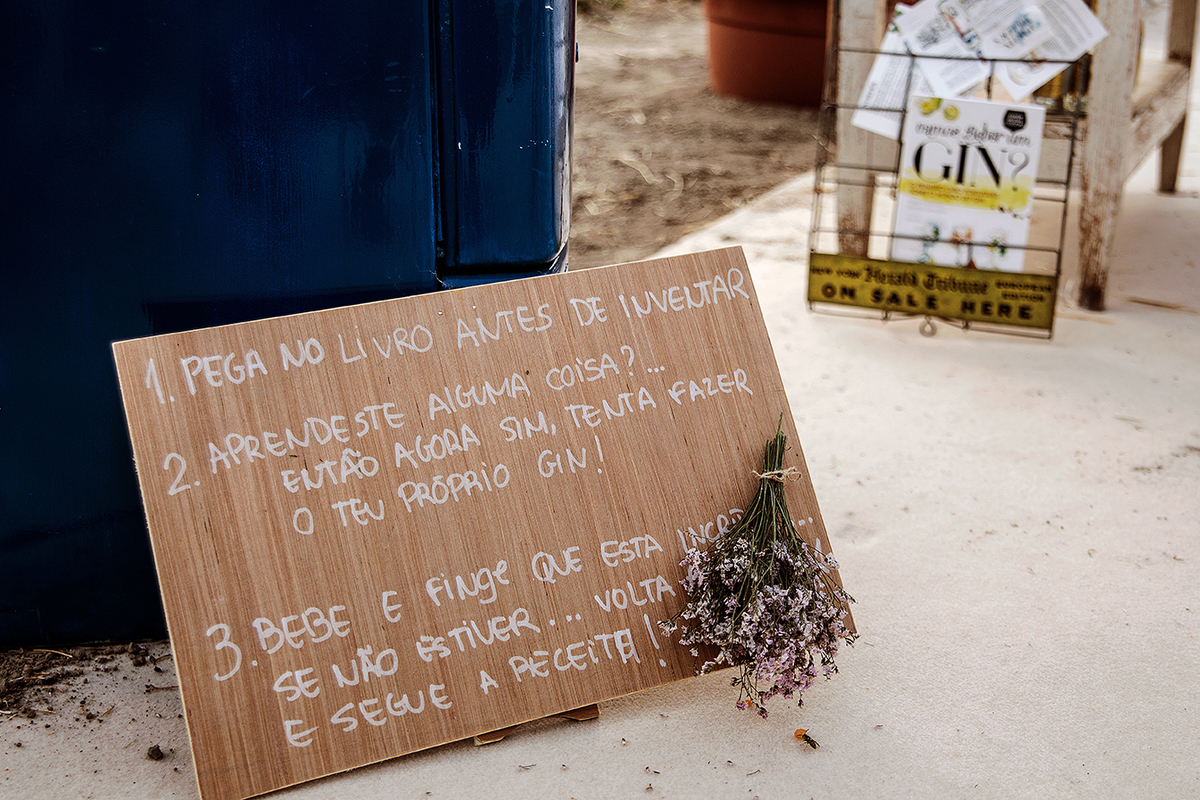 1. PEGA NO LIVRO ANTES DE INVENTAR
2. APRENDESTE ALGUMA COISA?...
ENTÃO AGORA SIM, TENTA FAZER
O TEU PRÓPRIO GIN!
3. BEBE E FINGE QUE ESTA
SE NÃO ESTIVER... VOLTA
E SEGUE A RECEITA!
vamos beber um
GIN?
Herald Tribune EUROPEAN EDITION
ON SALE HERE